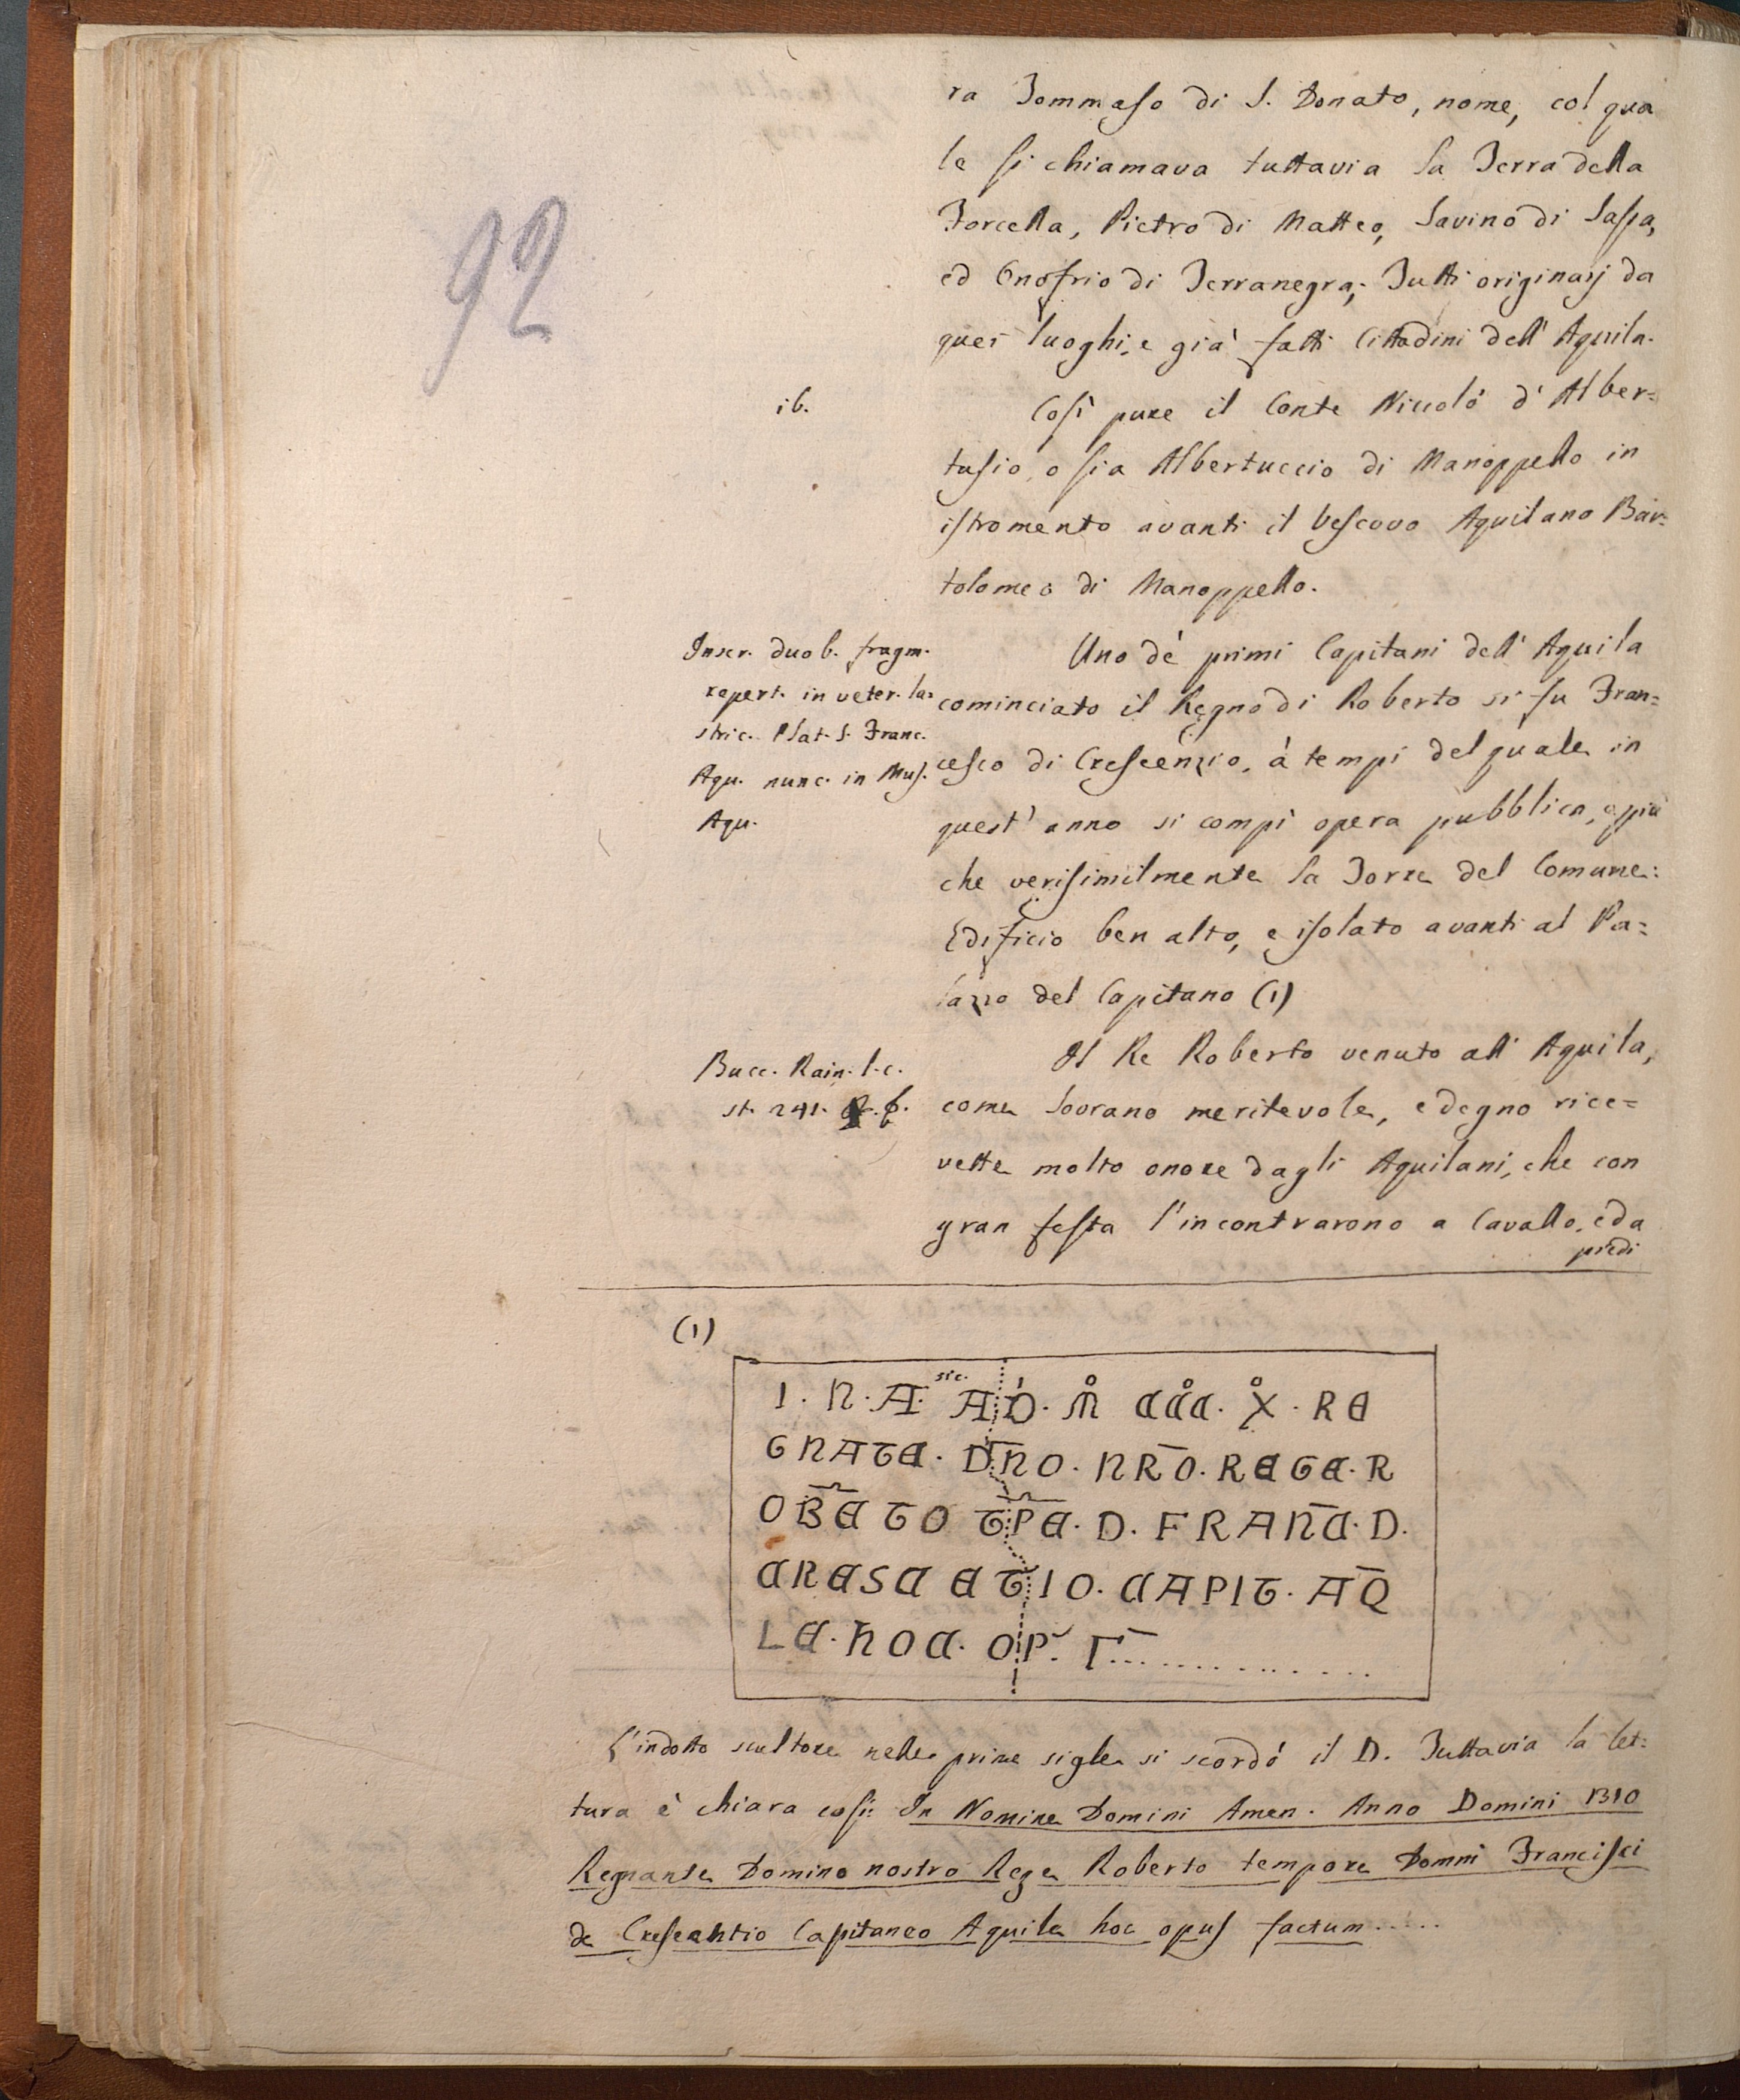 ra Tommaso di S. Donato, nome, col qua
le si chiamava tuttavia la Terra della
Forcella, Pietro di Matteo, Savino di Sassa,
ed Onofrio di Terranegra; Tutti originarj da
quei luoghi, e già fatti Cittadini dell' Aquila.
ib.
Così pure il Conte Niccolò d' Alber=
tusio, o sia Albertuccio di Manoppello in
istromento avanti il Vescovo Aquilano Bar=
tolomeo di Manoppello.
Inscr. duob. fragm.
repert. in veter. la=
stric. Plat. S. Franc.
Aqu. nunc in Mus.
Aqu.
Uno de' primi Capitani dell' Aquila
cominciato il Regno di Roberto si fu Fran=
cesco di Crescenzio, a' tempi del quale in
quest' anno si compì opera pubblica, e più
che verisimilmente la Torre del Comune:
Edificio ben alto, e isolato avanti al Pa=
lazzo del Capitano (1)
Bucc. Rain. l.c.
st. 241.
Il Re Roberto venuto all' Aquila,
come Sovrano meritevole, e degno rice=
vette molto onore dagli Aquilani, che con
gran festa l'incontrarono a Cavallo, ed a
piedi
(1)
sic.
I. N. A. A D. M CCC. X. RE
GNATE. DNO. NRO. REGE. R
OBETO TPE. D. FRANC. D.
CRESCETIO. CAPIT. AQ
LE. HOC. OP. F..............
L'indotto scultore nelle prime sigle si scordò il D. Tuttavia la let=
tura è chiara così: In Nomine Domini Amen. Anno Domini 1310
Regnante Domino nostro Rege Roberto tempore Domni Francisci
de Crescentio Capitaneo Aquile hoc opus factum.....
92